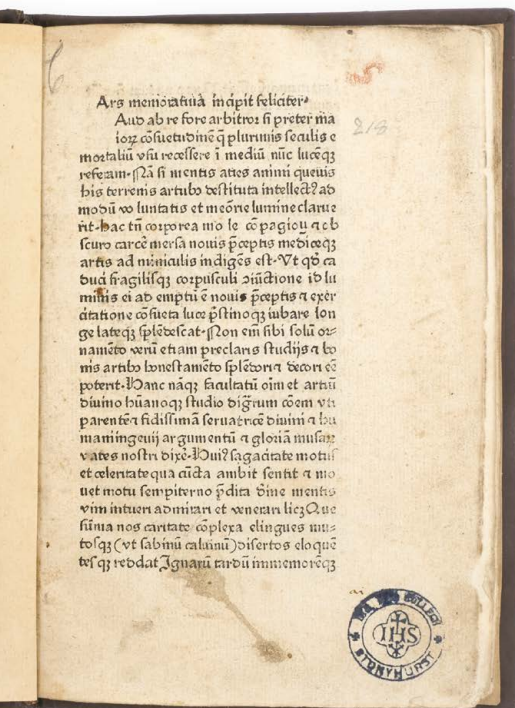 218
Ars memoratiua incipit feliciter·
Aud ab re fore arbitror si preter ma
ioꝝ cōsuetudinē q̄ plurimis seculis e
mortaliū vsu recessere ī mediū nūc lucēqꝫ
referam·Nā si mentis aties animi queuis
his terrenis artubꝰ destituta intellectꝰ ad
modū vo luntatis et meōrie lumine clarue
rit·hac tn̄ corporea mo le cō pagioū ⁊ ob
scuro carcē mersa nouis p̄ceptis mediceqꝫ
artis ad miniculis indigēs est·Vt qd̄ ca
duci fragilisqꝫ corpusculi ↄiūctione id lu
minis ei ad emptū ē nouis p̄ceptis ⁊ exer
citatione cōsueta luce p̄stinoqꝫ iubare lon
ge lateqꝫ splēdescat·Non em̄ sibi solū or-
namēto verū etiam preclaris studijs ⁊ bo
nis artibꝰ honestamēto splēdori ⁊ decori eē
poterit·Hanc nāqꝫ facultatū oīm et artiū
diuino hūanoqꝫ studio dig̅rum cōem vti
parentē ⁊ fidissimā seruatricē diuini ⁊ hu
mani ingenij argumentū ⁊ gloriā musaꝝ
vates nostri dixē·Huiꝰ sagacitate motus
et celeritate qua cūcta ambit sentit ⁊ mo
uet motu sempiterno p̄dita d̄ine mentis
vim intueri admirari et venerari licꝫ Que
sūma nos caritate cōplexa elingues mu-
tosqꝫ (vt sabinū caluinū) disertos eloquē
tesqꝫ reddat Ignarū tardū immemorēqꝫ
COLLEGII
IHS
STONYHURST